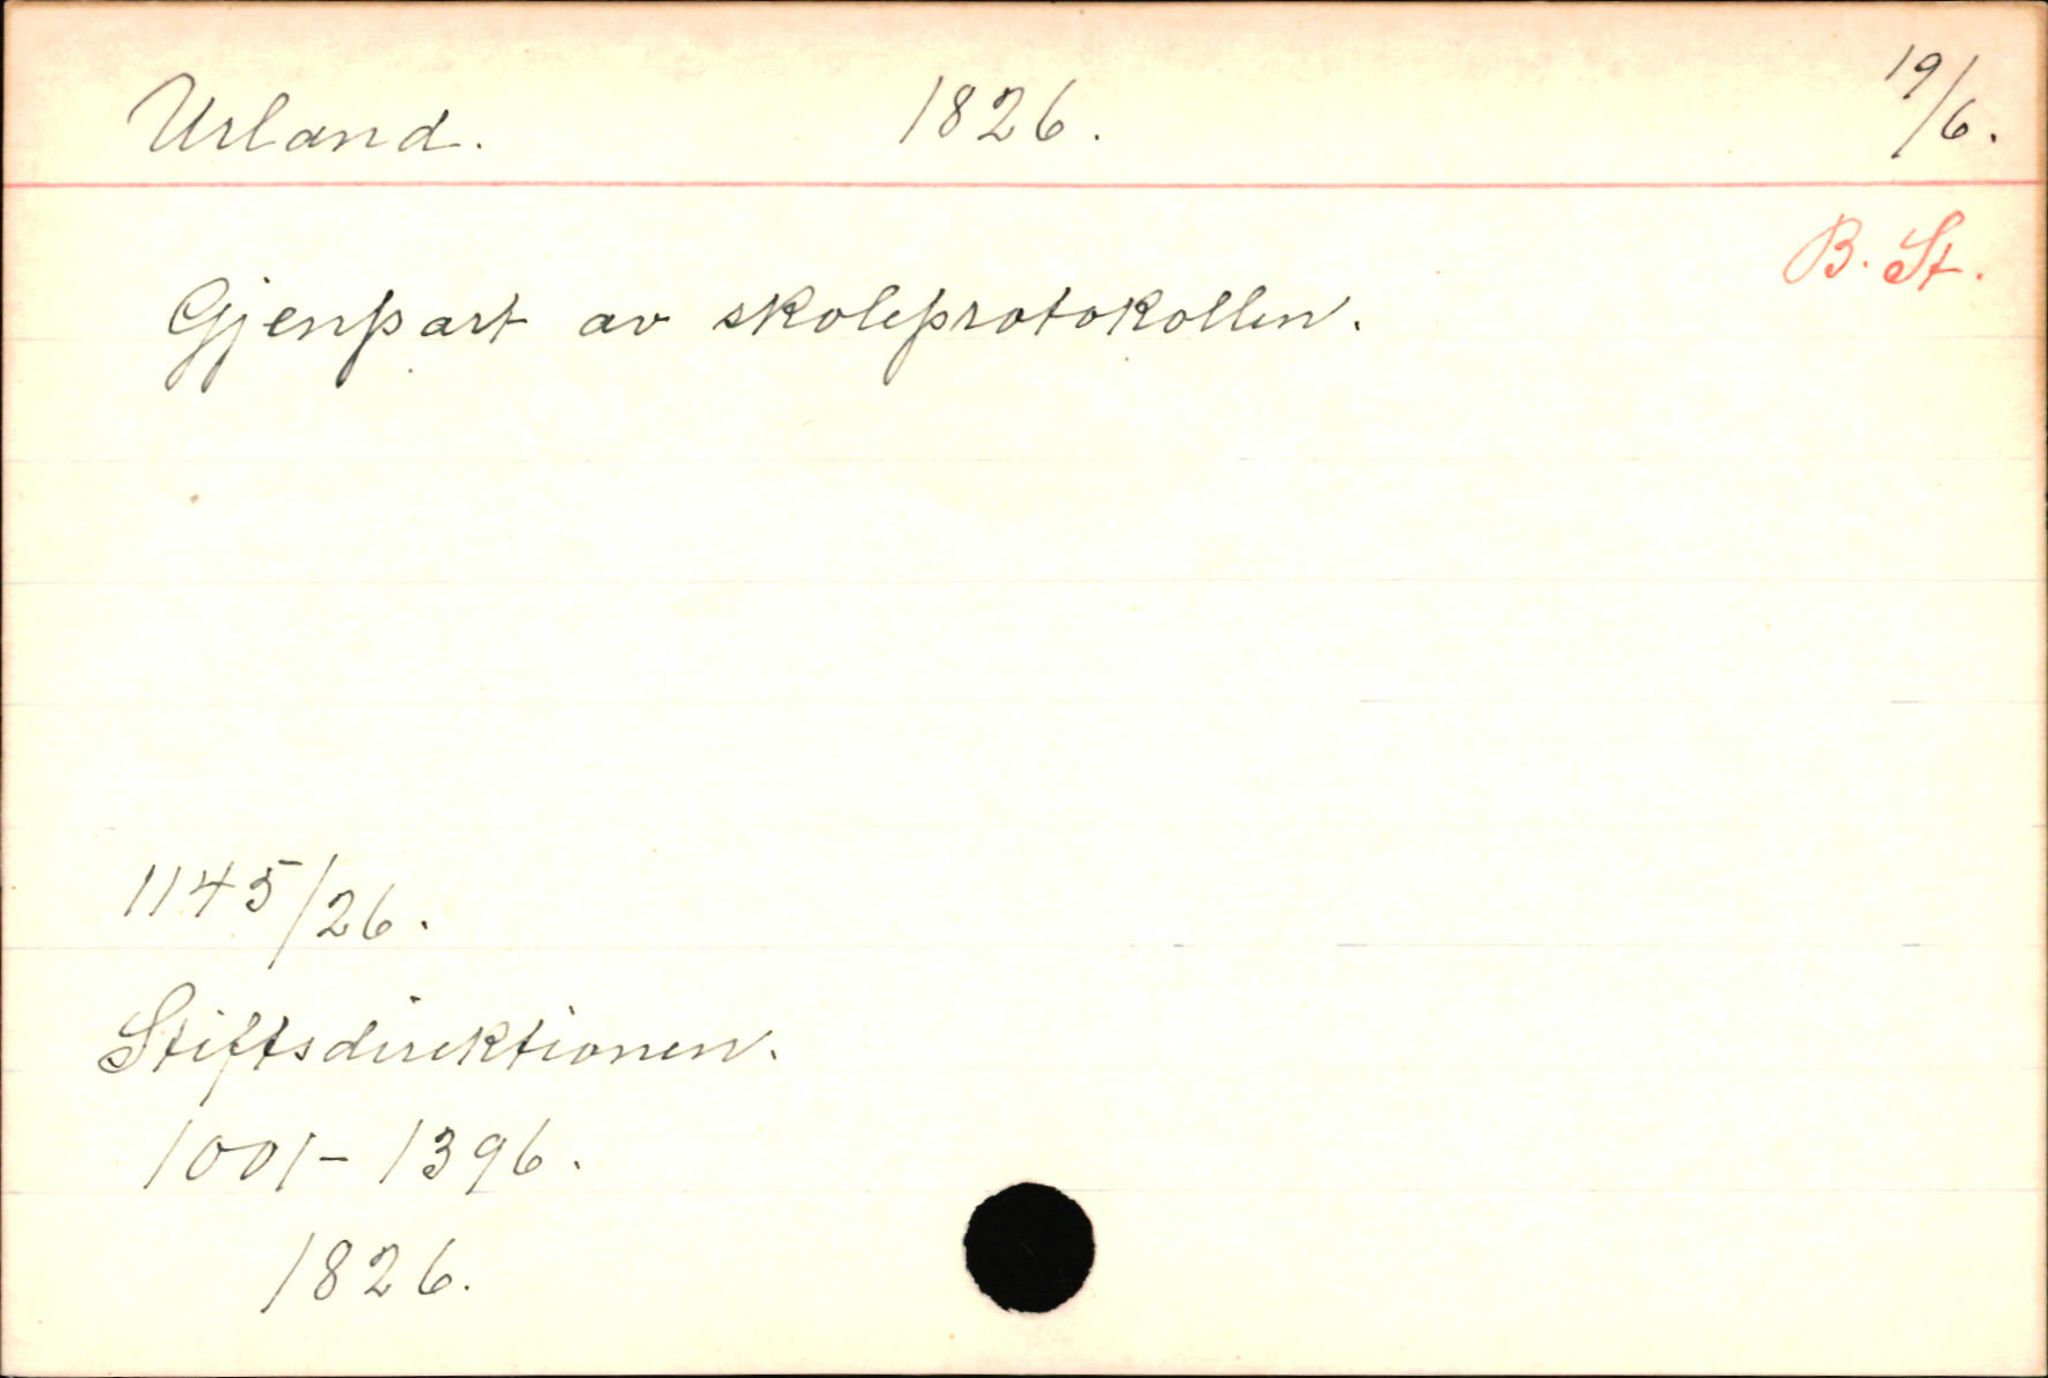 Urland. 1826. 19/6.
B. St.
Gjenpart av skoleprotokollen.
1145/26.
Stiftsdirektionen.
1001-1396.
1826.